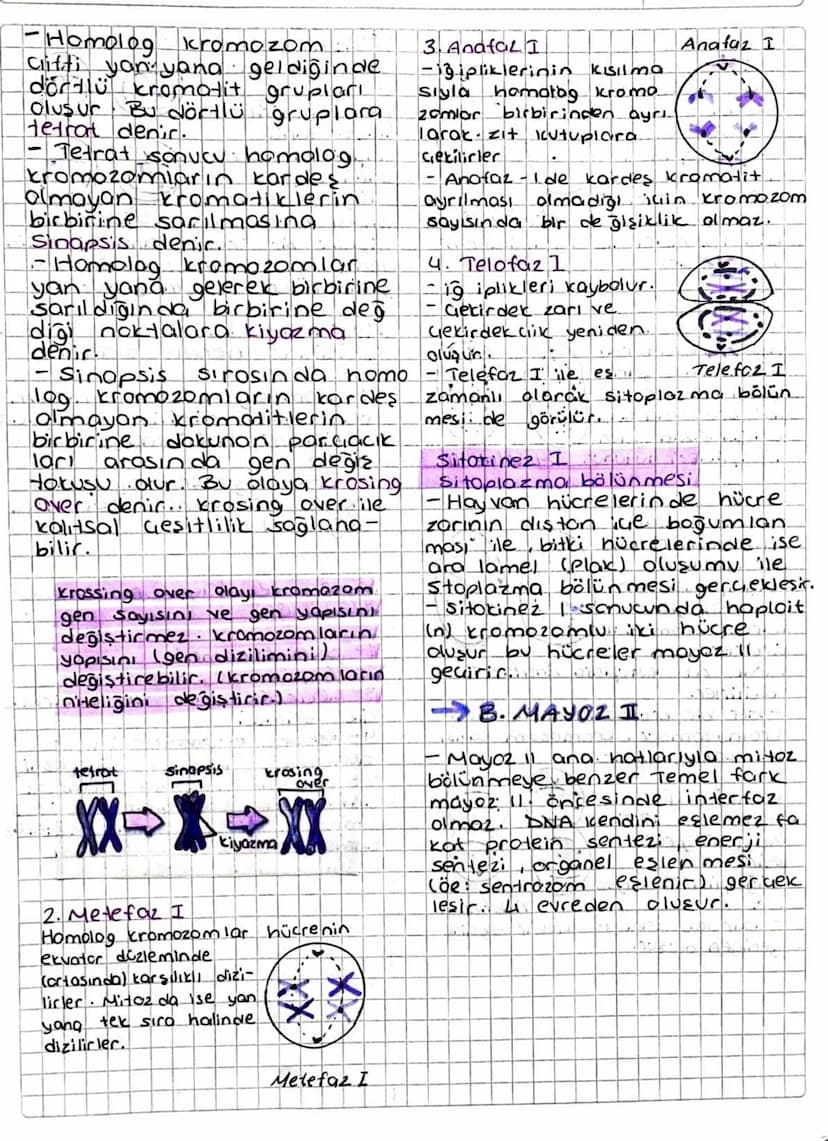 - Homolog kromozom
çifti yan yana geldiğinde
dörtlü kromatit grupları
oluşur. Bu dörtlü gruplara
tetrat denir.
- Tetrat sonucu homolog
kromozomların kardeş
olmayan kromatitlerin
birbirine sarılmasına
Sinapsis denir.
- Homolog kromozomlar
yan yana gelerek birbirine
sarıldığında birbirine değ
diği noktalara kiyazma
denir.
- Sinapsis sırasında homo
log kromozomların kardeş
olmayan kromatitlerin
birbirine dokunan parçacık
ları arasında gen değiş
tokuşu olur. Bu olaya krosing
over denir.. krosing over ile
kalıtsal çeşitlilik sağlana-
bilir.
krossing over olayı kromozom
gen sayısını ve gen yapısını
değiştirmez. kromozomların
yapısını (gen dizilimini)
değiştirebilir. (kromozomların
niteliğini değiştirir.)
tetrat
sinapsis
krosing
over
kiyazma
2. Metefaz I
Homolog kromozomlar hücrenin
ekvator düzleminde
(ortasında) karşılıklı dizi-
lirler. Mitoz da ise yan
yana tek sıra halinde
dizilirler.
Metefaz I
3. Anafaz I
Anafaz I
- iğ ipliklerinin kısılma
sıyla homolog kromo
zomlar birbirinden ayrı
larak zıt kutuplara
çekilirler
- Anafaz - I de kardeş kromatit
ayrılması olmadığı için kromozom
sayısında bir değişiklik olmaz.
4. Telofaz I
- iğ iplikleri kaybolur.
- Çekirdek zarı ve
çekirdekcik yeniden
oluşur.
- Telefaz I ile eş
zamanlı olarak sitoplazma bölün
mesi de görülür.
Telefaz I
Sitokinez I
Sitoplazma bölünmesi
- Hayvan hücrelerinde hücre
zarının dıştan içe boğumlan
ması ile, bitki hücrelerinde ise
ara lamel (plak) oluşumu ile
Stoplazma bölünmesi gerçekleşir.
- Sitokinez I sonucunda haploit
(n) kromozomlu iki hücre
oluşur bu hücreler mayoz II
geçirir.
→ B. MAYOZ II
- Mayoz II ana hatlarıyla mitoz
bölünmeye benzer temel fark
mayoz II öncesinde interfaz
olmaz. DNA kendini eşlemez fa
kat protein sentezi, enerji
sentezi, organel eşlenmesi
(öe: sentrozom eşlenir) gerçek
leşir. 4 evreden oluşur.